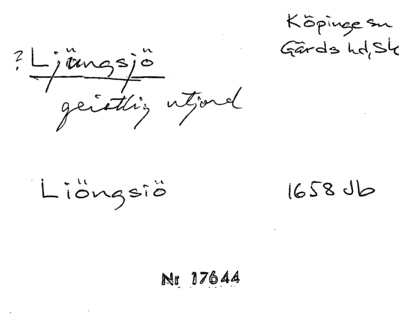 Köpinge sn
Gärds hd, Sk
? Ljungsjö
geistlig utjord
Liöngsiö 1658 Jb
Nr 17644